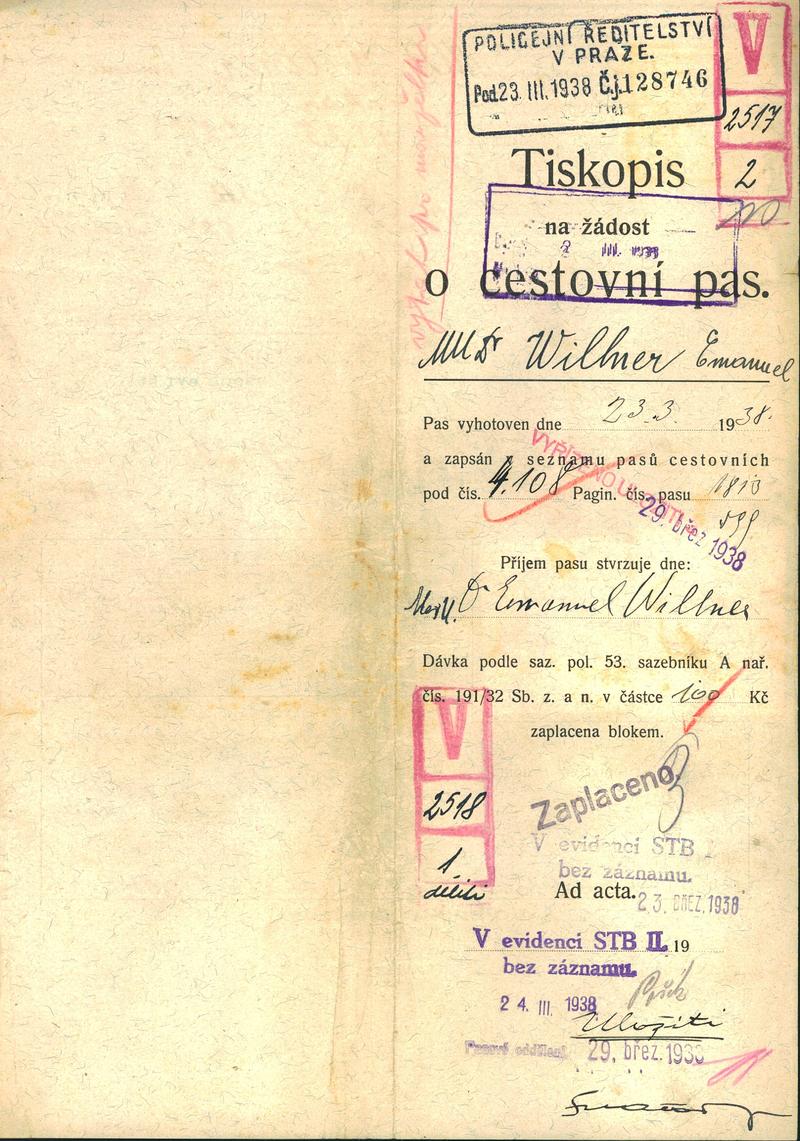 POLICEJNÍ ŘEDITELSTVÍ
V PRAZE.
Pod. 23. III. 1938 Č.j. 128746
V
2517
2
Tiskopis
na žádost
III. 1938
o cestovní pas.
MUDr Willner Emanuel
Pas vyhotoven dne 23.3. 1938.
a zapsán v seznamu pasů cestovních
pod čís. 4.108 Pagin. čís. pasu 1813
599
VYŘÍZENO
29. břez 1938
Příjem pasu stvrzuje dne:
Dr Emanuel Willner
Dávka podle saz. pol. 53. sazebníku A nař.
čís. 191/32 Sb. z. a n. v částce 100 Kč
zaplacena blokem.
V
2518
1
Zaplaceno
V evidenci STB I
bez záznamu.
Ad acta.
23. BŘEZ. 1938
V evidenci STB II. 19
bez záznamu.
24. III. 1938
Uložiti
Pasové oddělení 29. břez. 1938